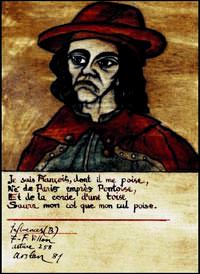 Je suis François, dont il me poise,
Né de Paris emprès Pontoise,
Et de la corde d'une toise
Saura mon col que mon cul poise.
Influences (B)
F. Villon
258
81